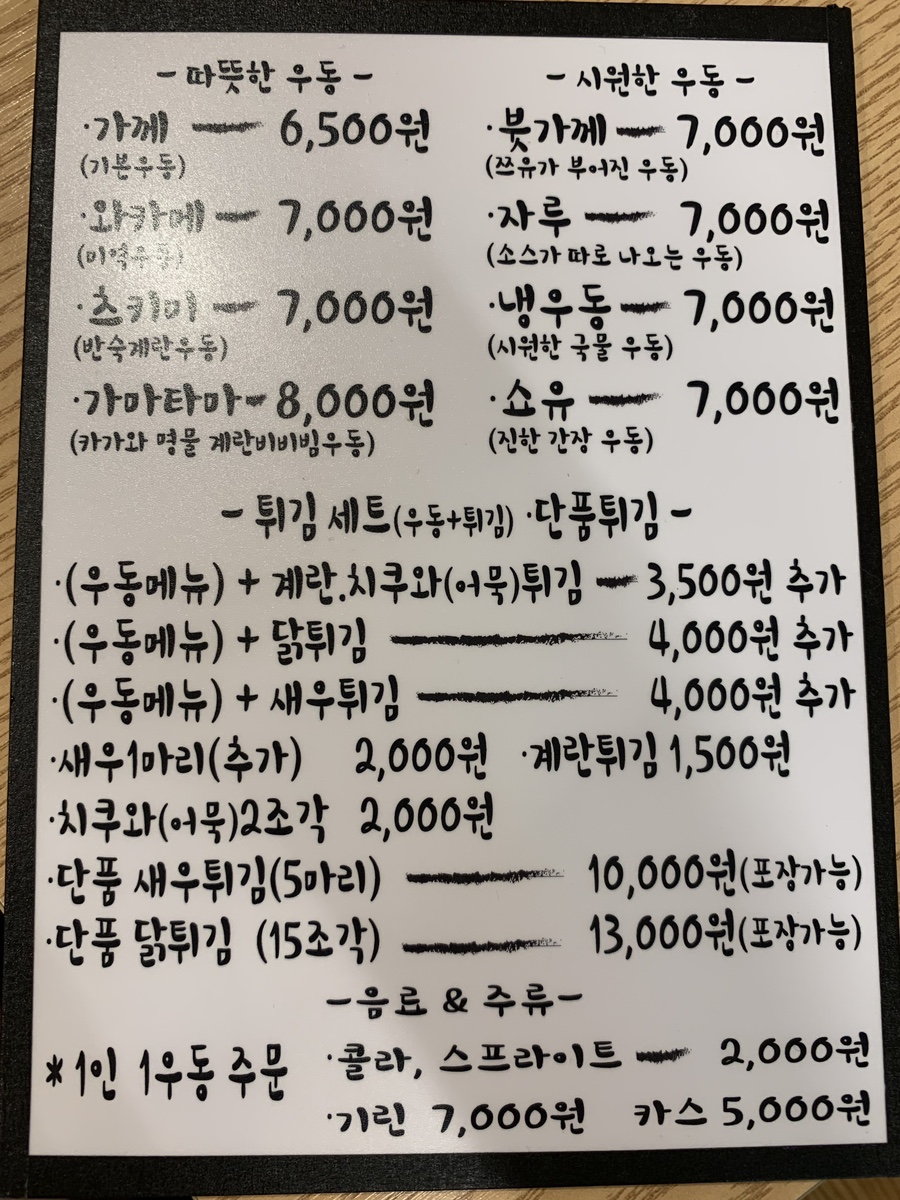 - 따뜻한 우동 -
·가께 — 6,500원
(기본우동)
·와카메 — 7,000원
(미역우동)
·츠키미 — 7,000원
(반숙계란우동)
·가마타마 - 8,000원
(카가와 명물 계란비비빔우동)
- 시원한 우동 -
·붓가께 — 7,000원
(쯔유가 부어진 우동)
·자루 — 7,000원
(소스가 따로 나오는 우동)
·냉우동 — 7,000원
(시원한 국물 우동)
·쇼유 — 7,000원
(진한 간장 우동)
- 튀김 세트(우동+튀김) ·단품튀김 -
·(우동메뉴) + 계란.치쿠와(어묵)튀김 — 3,500원 추가
·(우동메뉴) + 닭튀김 — 4,000원 추가
·(우동메뉴) + 새우튀김 — 4,000원 추가
·새우1마리(추가) 2,000원 ·계란튀김 1,500원
·치쿠와(어묵)2조각 2,000원
·단품 새우튀김(5마리) — 10,000원(포장가능)
·단품 닭튀김 (15조각) — 13,000원(포장가능)
-음료 & 주류-
*1인 1우동 주문
·콜라, 스프라이트 — 2,000원
·기린 7,000원 카스 5,000원